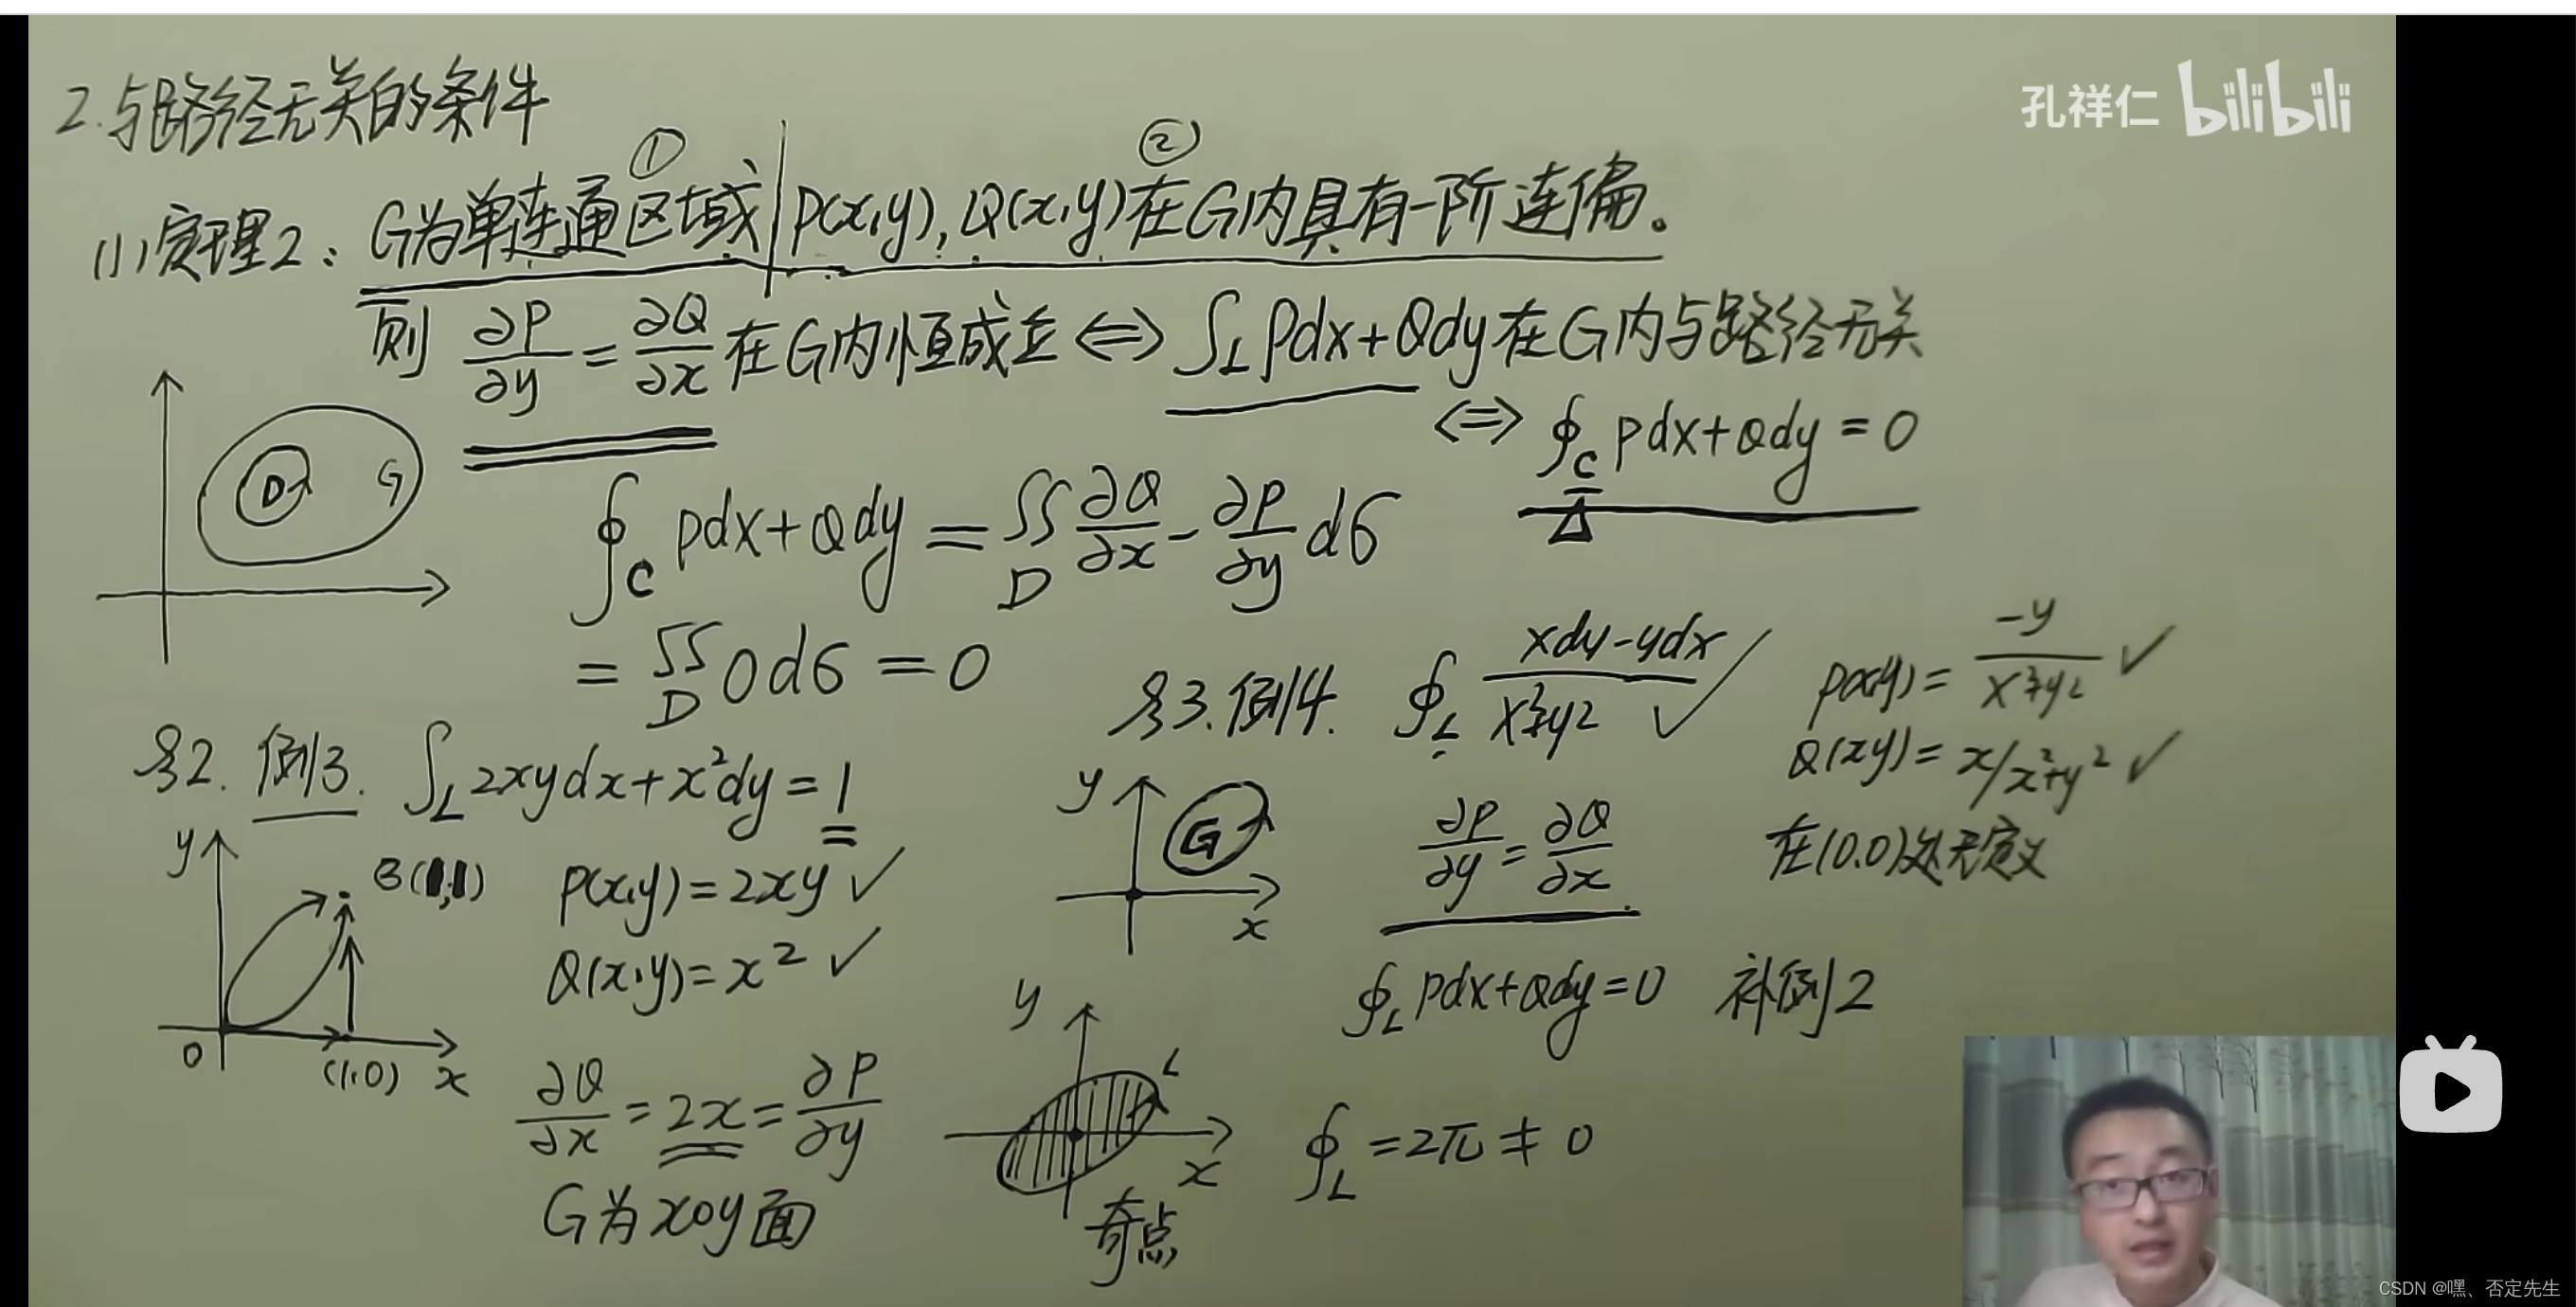 2.与路径无关的条件
孔祥仁 bilibili
① ②
(1)定理2:G为单连通区域|P(x,y),Q(x,y)在G内具有一阶连偏。
则 ∂P/∂y=∂Q/∂x 在G内恒成立⇔∫_L Pdx+Qdy在G内与路径无关
⇔ ∮_C Pdx+Qdy=0
D G
∮_C Pdx+Qdy=∬_D ∂Q/∂x-∂P/∂y dσ
=∬_D 0dσ=0
§2.例3. ∫_L 2xydx+x²dy=1
y B(1,1)
O (1,0) x
P(x,y)=2xy ✓
Q(x,y)=x² ✓
∂Q/∂x=2x=∂P/∂y
G为xoy面
§3.例4. ∮_L (xdy-ydx)/(x²+y²) ✓
P(x,y)=-y/(x²+y²) ✓
Q(xy)=x/x²+y² ✓
在(0,0)处无定义
y G x
∂P/∂y=∂Q/∂x
∮_L Pdx+Qdy=0 补例2
y L x
∮_L=2π≠0
奇点
CSDN @嘿、否定先生